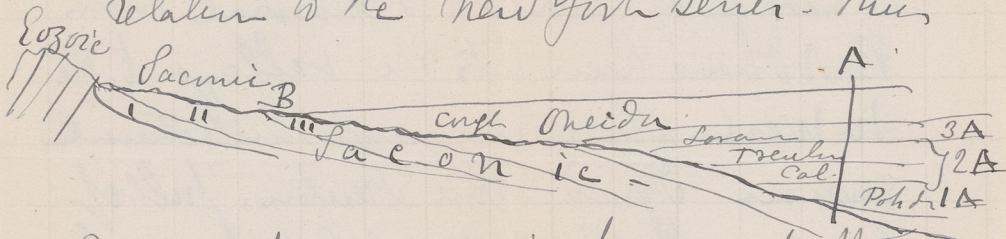 relation to the New York series - thus
Eozoic
Taconic
B
A
I II III
Congl Oneida
Taconic -
Lorain
3A
Trenton
2A
Cal.
Potsd. 1A